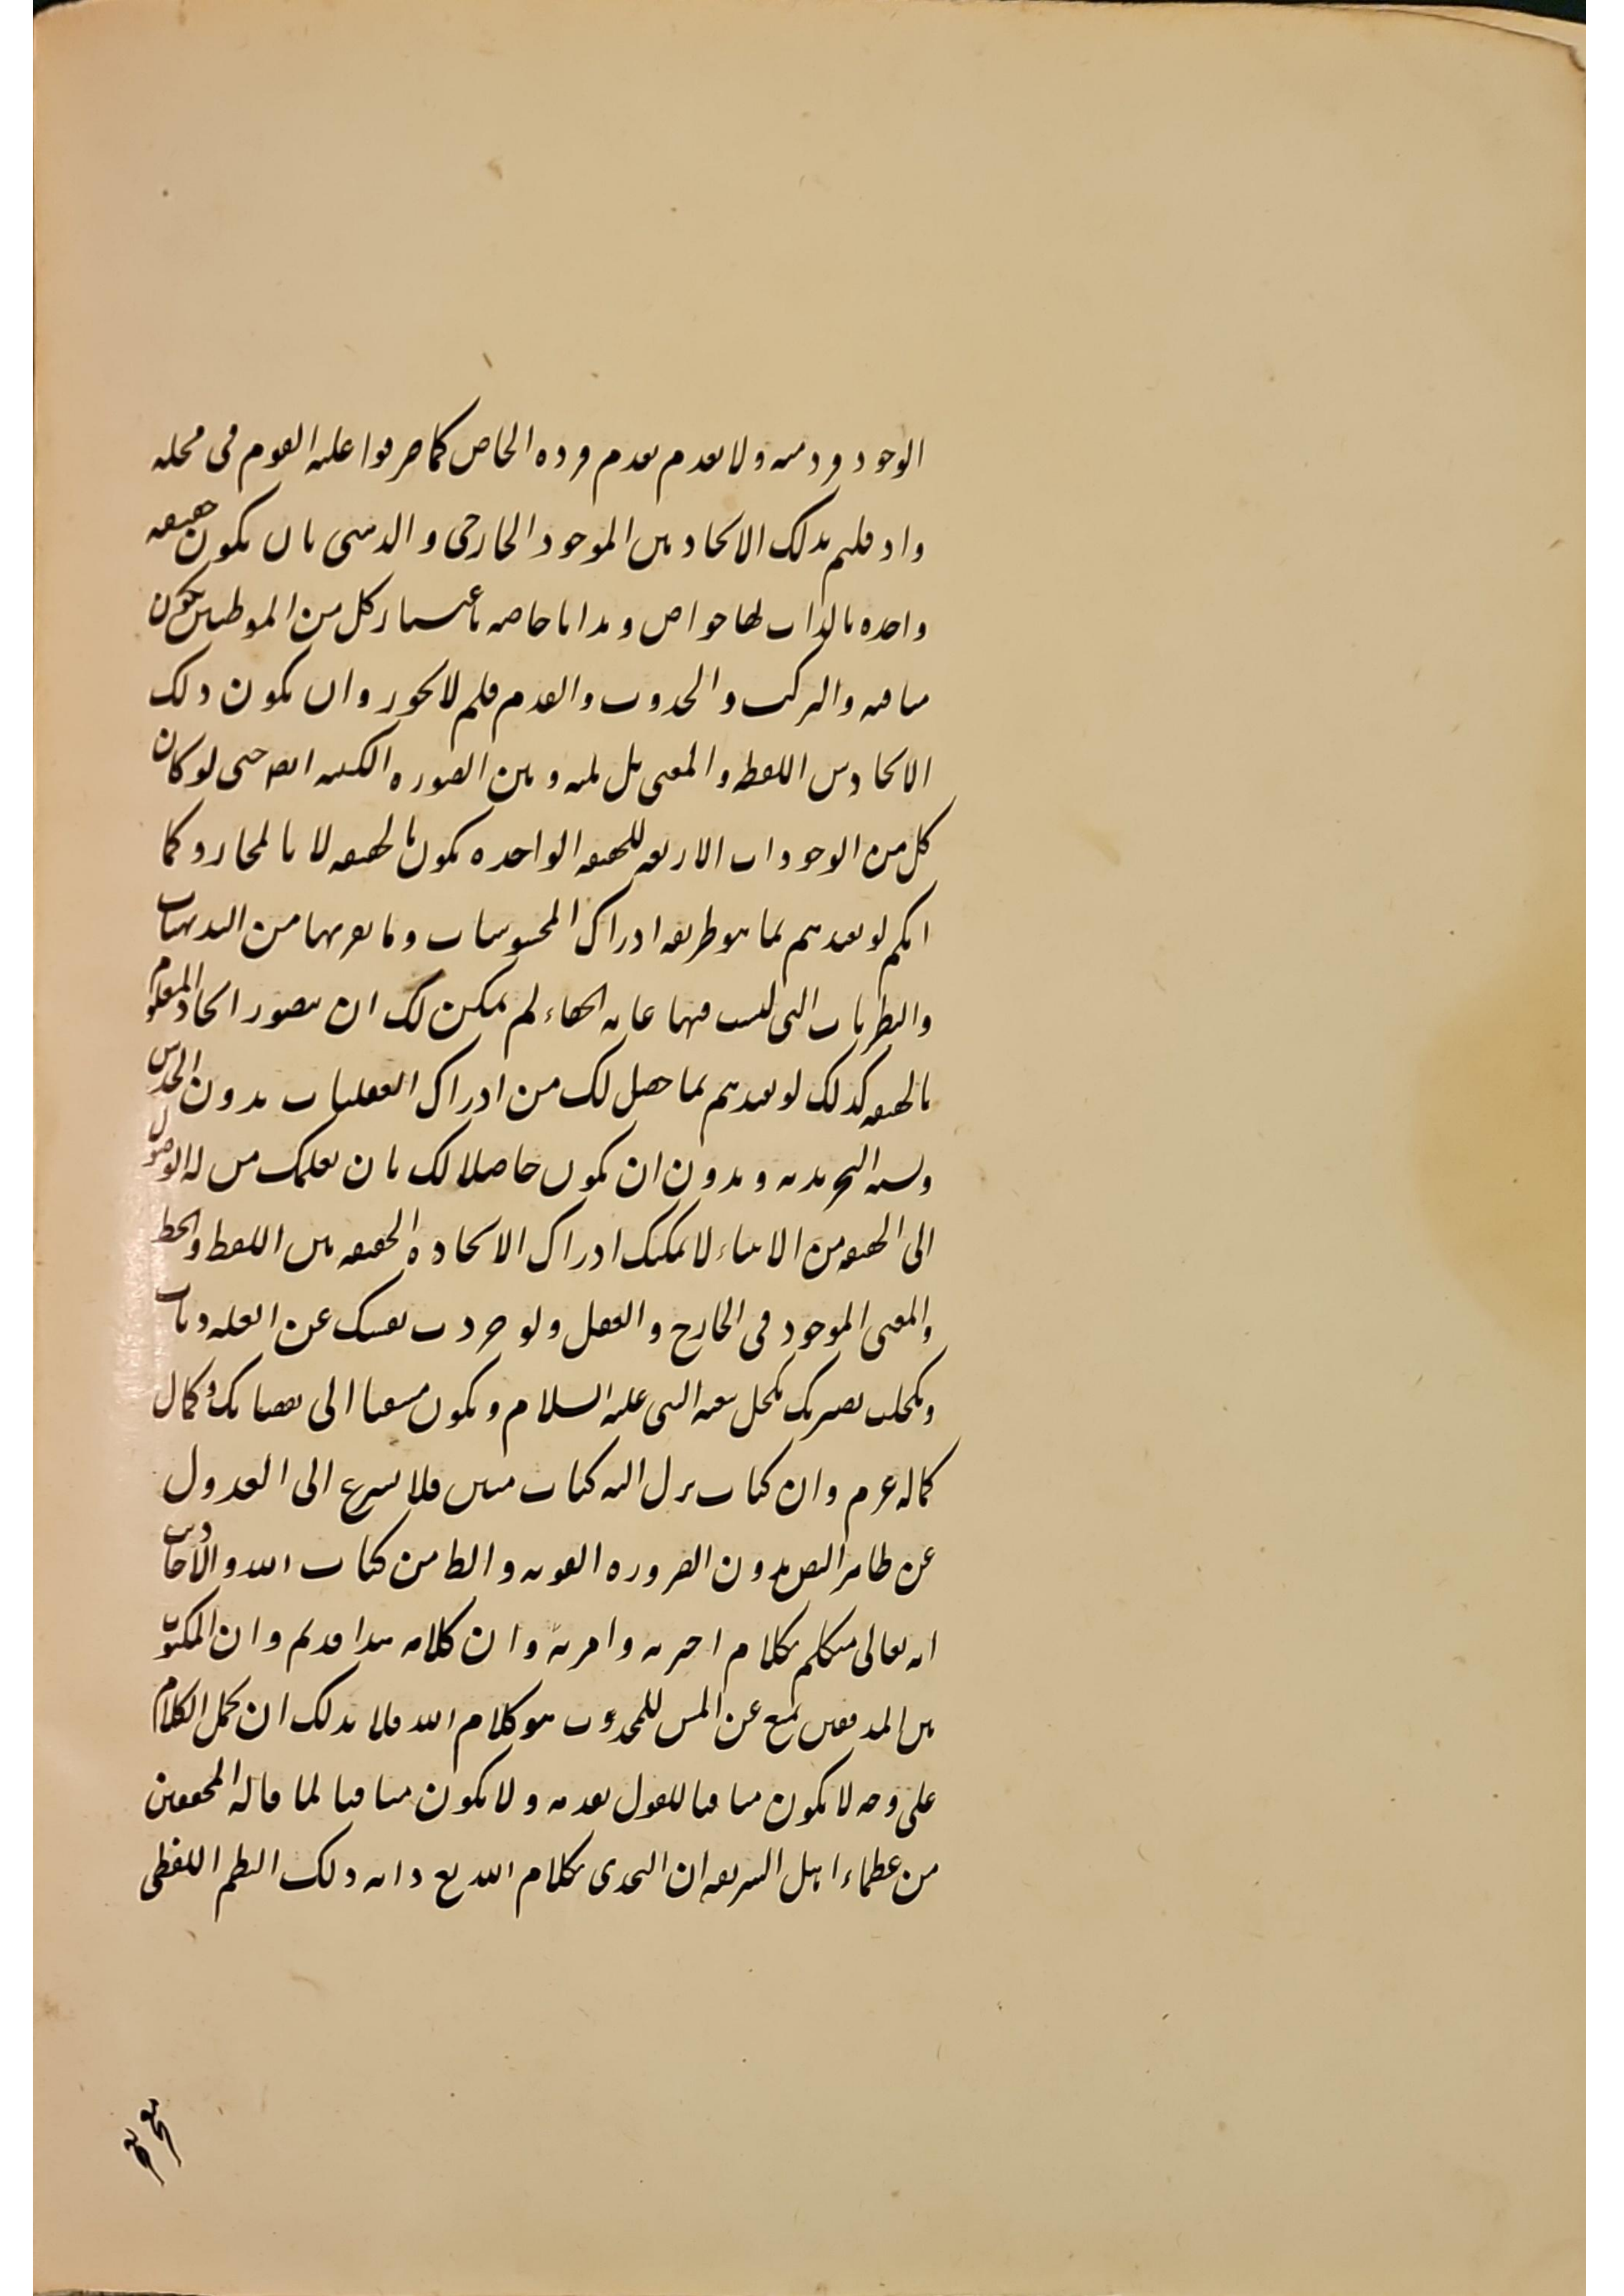 الوجود فرد منه ولا يعدم بعدم فرده الخاص كما صرفوا عليه القوم في محله
واذ قلتم بذلك الاتحاد بين الموجود الخارجي والذهني بان يكون حقيقه
واحده بالذات لها خواص و خاصه باعتبار كل من الموطنين يكون
والتركيب والحدوث والقدم فلم لا تجوزوا ان يكون ذلك
الاتحاد بين اللفظ والمعنى بل بينه و بين الصوره الكتبيه ايضا حتى لو كان
كل من الوجودات الاربعه للحقيقه الواحده يكون بالحقيقه لا بالمجاز و كما
انكم لو بما هو طريقه ادراك المحسوسات وما يقربها من البديهيات
والنظريات التي ليست فيها غايه الخفاء لم يمكن لك ان تتصور اتحاد المعلوم
بالحقيقه كذلك لو بما حصل لك من ادراك العقليات بدون الحدس
التجريديه و بدون ان يكون حاصلا لك بان يعلمك من له الوصول
الى الحقيقه من الانبياء لا يمكنك ادراك الاتحاد الحقيقه بين اللفظ والخط
والمعنى الموجود في الخارج والعقل ولو جردت نفسك عن
بصيرتك بكحل متابعه النبي عليه السلام و يكون الى نقصانك و كمال
كماله عرفت وان كتاب نزل اليه كتاب مبين فلا تسرع الى العدول
عن ظاهر النص بدون الضروره القويه والظاهر من كتاب الله والاحاديث
انه تعالى متكلم بكلام اخبر به وامر به وان كلامه هذا قديم وان المكتوب
بين الدفتين يمنع عن المس للمحدث هو كلام الله فلا بد لك ان تحمل الكلام
على وجه لا يكون منافيا للقول بقدمه ولا يكون منافيا لما قاله المحققين
من عظماء اهل الشريعه ان التحدي بكلام الله مع ذلك النظم اللفظي